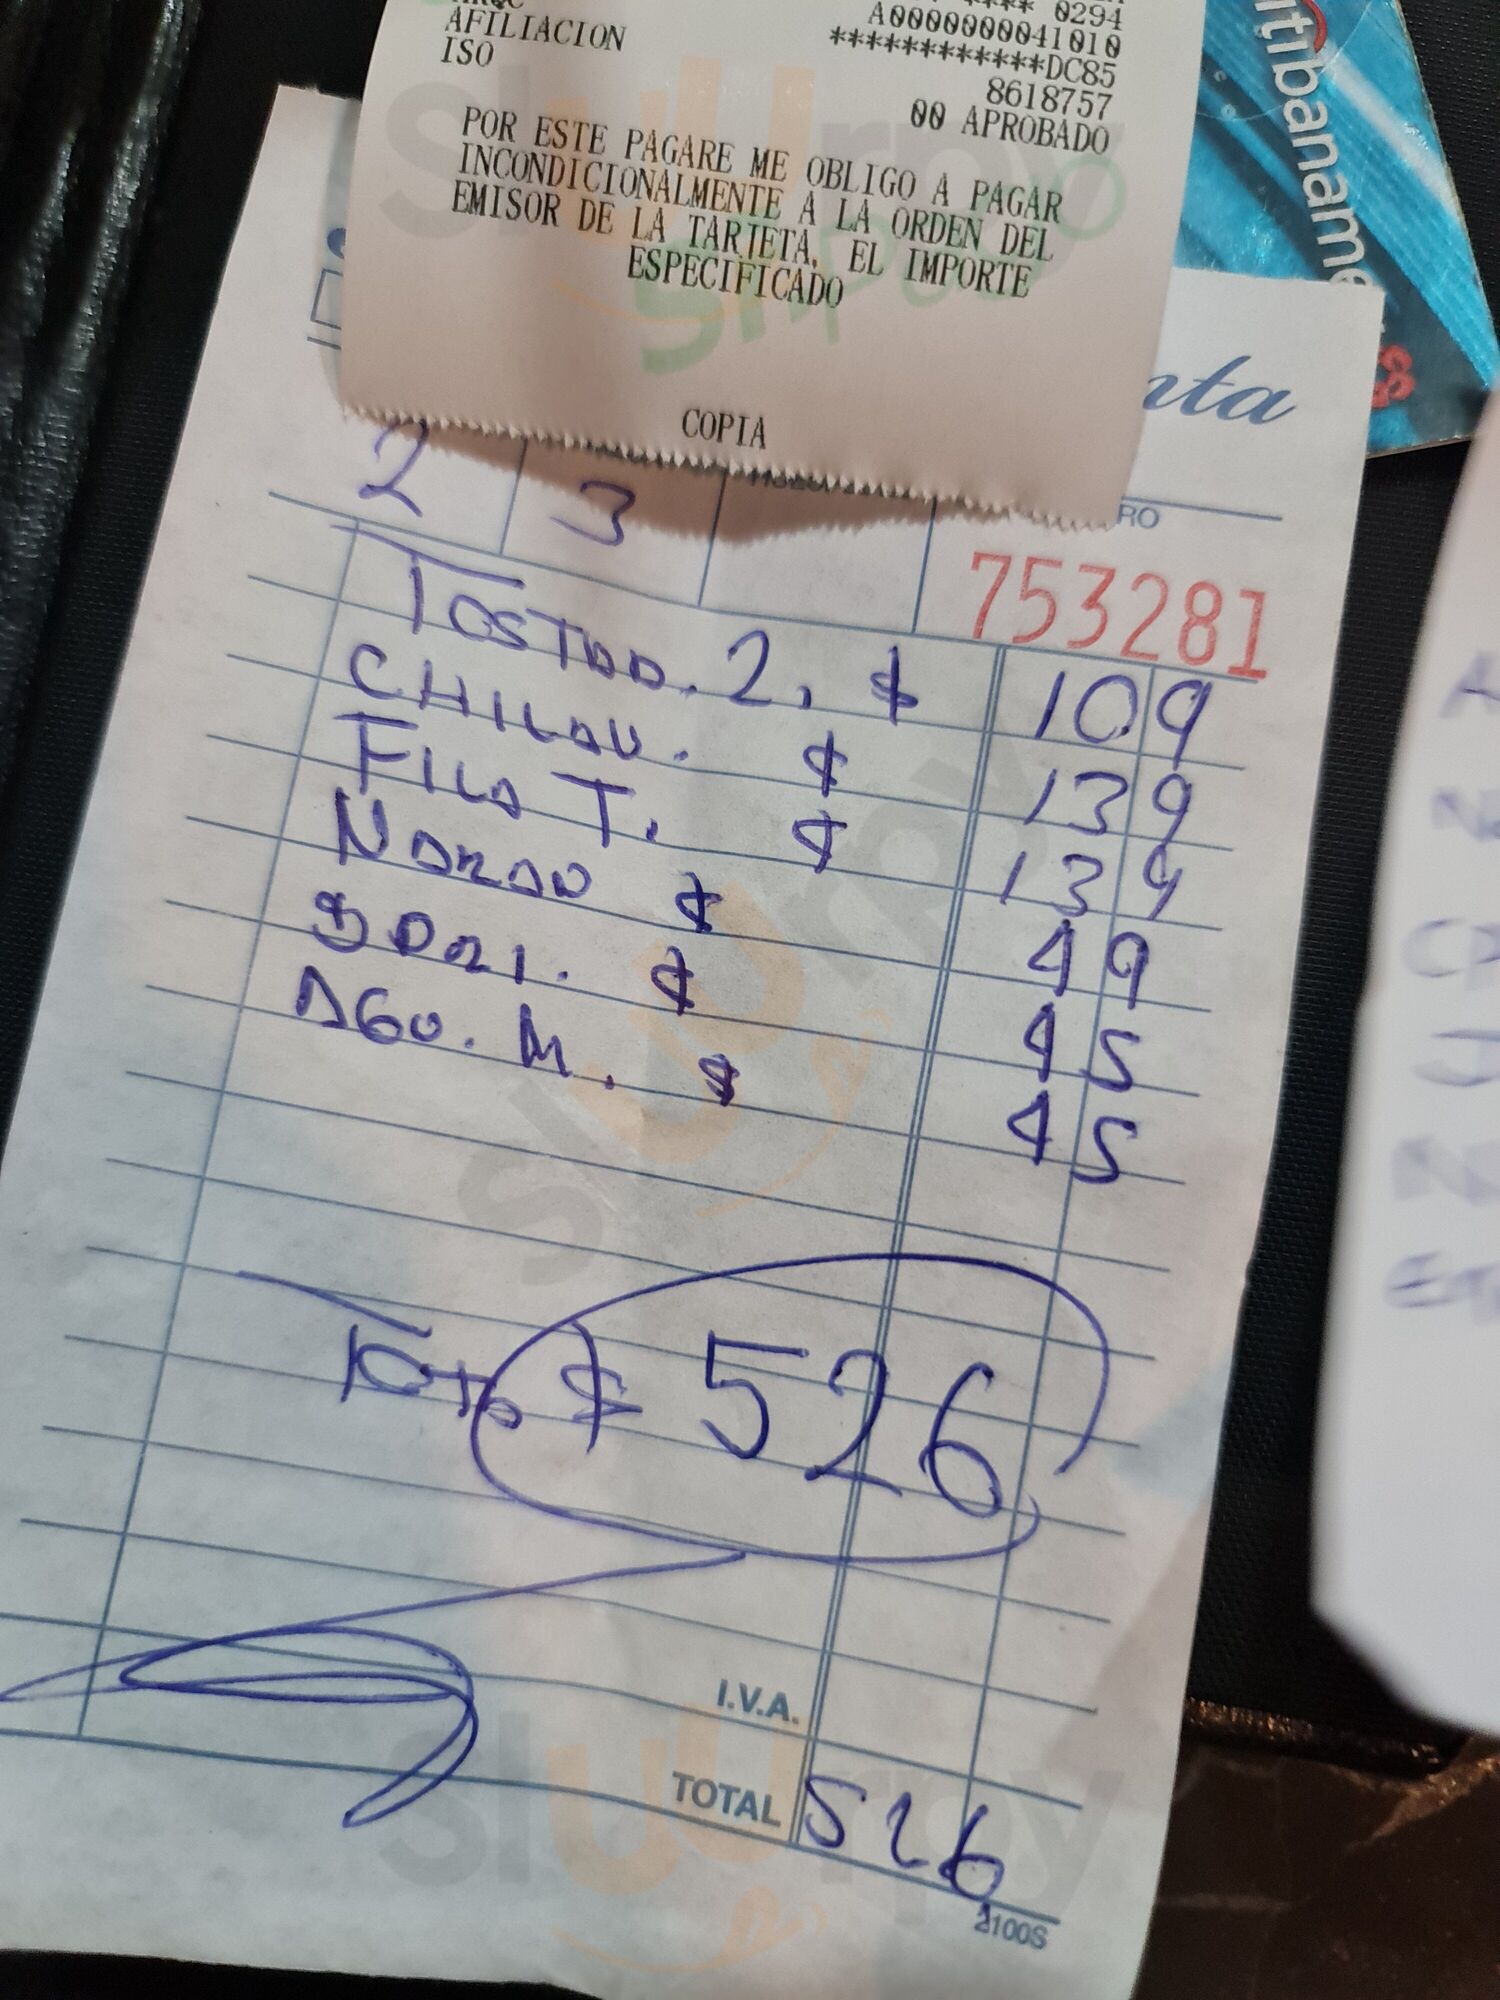 **** 0294
A0000000041010
************DC85
AFILIACION 8618757
ISO 00 APROBADO
POR ESTE PAGARE ME OBLIGO A PAGAR
INCONDICIONALMENTE A LA ORDEN DEL
EMISOR DE LA TARJETA, EL IMPORTE
ESPECIFICADO
COPIA
citibaname
nta
2 3
RO
753281
TOSTAD. 2, $ 109
CHILAU. $ 139
FILA T. $ 139
NARAN $ 49
$ 45
AGU. M. $ 45
$ 526
I.V.A.
TOTAL 526
2100S
slurrpy
slurrpy
slurrpy